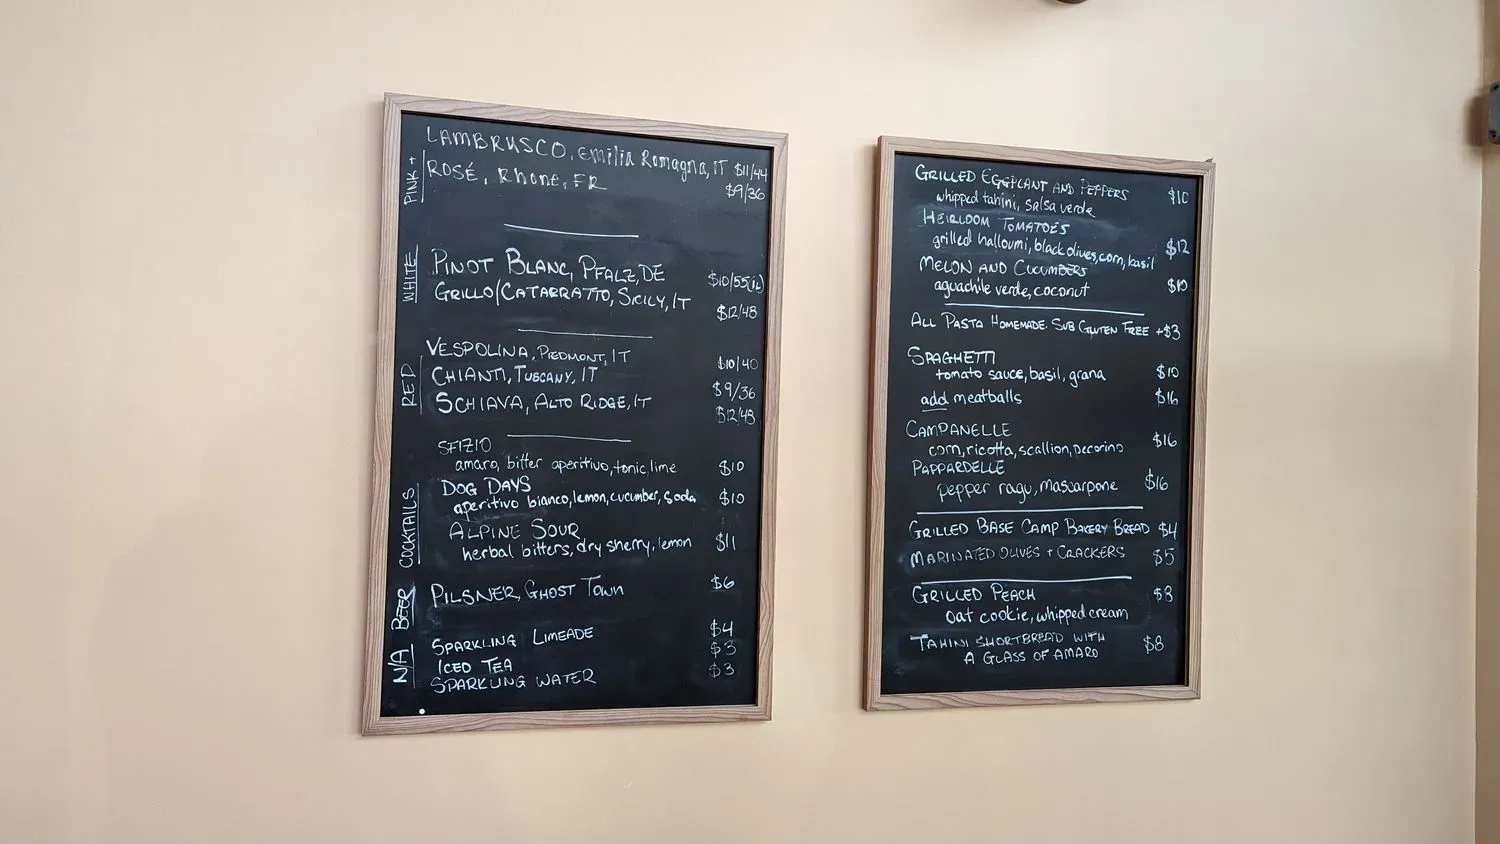 PINK +
LAMBRUSCO, Emilia Romagna, IT $11/44
ROSÉ, Rhone, FR $9/36
WHITE
PINOT BLANC, PFALZ, DE $10/55(1L)
GRILLO/CATARRATTO, SICILY, IT $12/48
RED
VESPOLINA, PIEDMONT, IT $10/40
CHIANTI, TUSCANY, IT $9/36
SCHIAVA, ALTO RIDGE, IT $12/48
COCKTAILS
SFIZIO
amaro, bitter aperitivo, tonic, lime $10
DOG DAYS
aperitivo bianco, lemon, cucumber, soda $10
ALPINE SOUR
herbal bitters, dry sherry, lemon $11
BEER
PILSNER, GHOST TOWN $6
N/A
SPARKLING LIMEADE $4
ICED TEA $3
SPARKLING WATER $3
GRILLED EGGPLANT AND PEPPERS $10
whipped tahini, salsa verde
HEIRLOOM TOMATOES
grilled halloumi, black olives, corn, basil $12
MELON AND CUCUMBERS
aguachile verde, coconut $10
ALL PASTA HOMEMADE. SUB GLUTEN FREE +$3
SPAGHETTI
tomato sauce, basil, grana $10
add meatballs $16
CAMPANELLE
corn, ricotta, scallion, pecorino $16
PAPPARDELLE
pepper ragu, mascarpone $16
GRILLED BASE CAMP BAKERY BREAD $4
MARINATED OLIVES + CRACKERS $5
GRILLED PEACH $8
oat cookie, whipped cream
TAHINI SHORTBREAD WITH
A GLASS OF AMARO $8